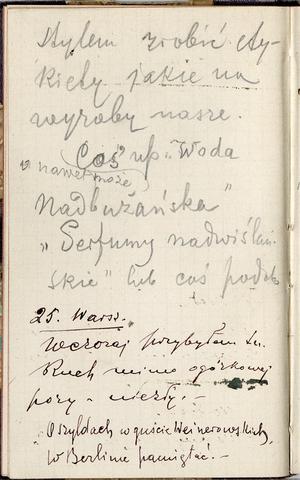 stylem zrobić ety-
kiety jakie na
wyroby nasze.
Coś np. Woda
nawet może
Nadbużańska"
"Perfumy nadwiślań-
skie" lub coś podob
25. Warsz.
Wczoraj przybyłem tu.
Ruch mimo ogórkowej
pory - niezły. -
O szyldach w guście
w Berlinie pamiętać. -